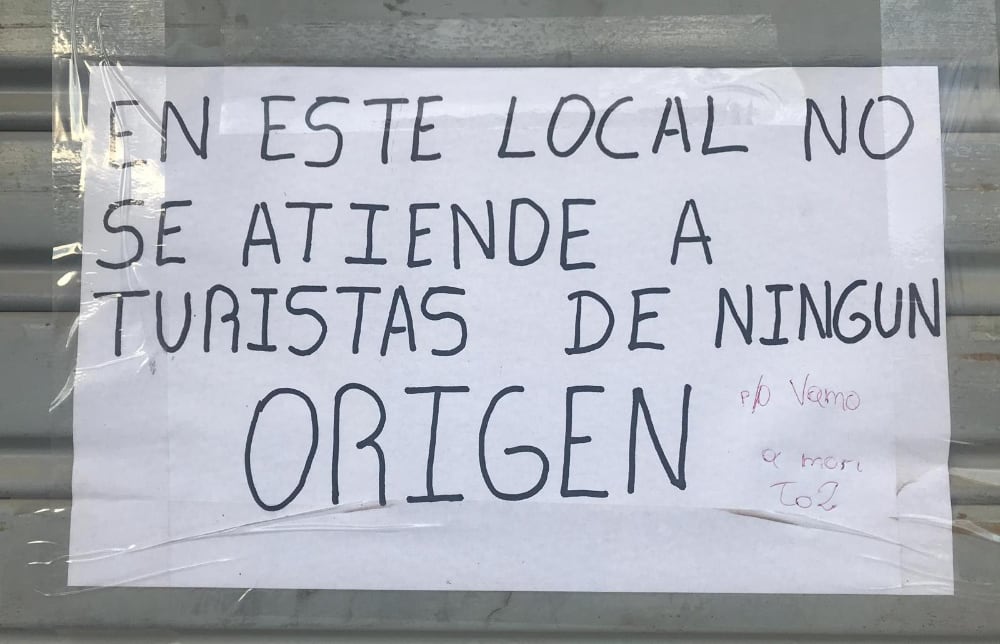 EN ESTE LOCAL NO
SE ATIENDE A
TURISTAS DE NINGUN
ORIGEN
p/o Vamo
a mori
To2